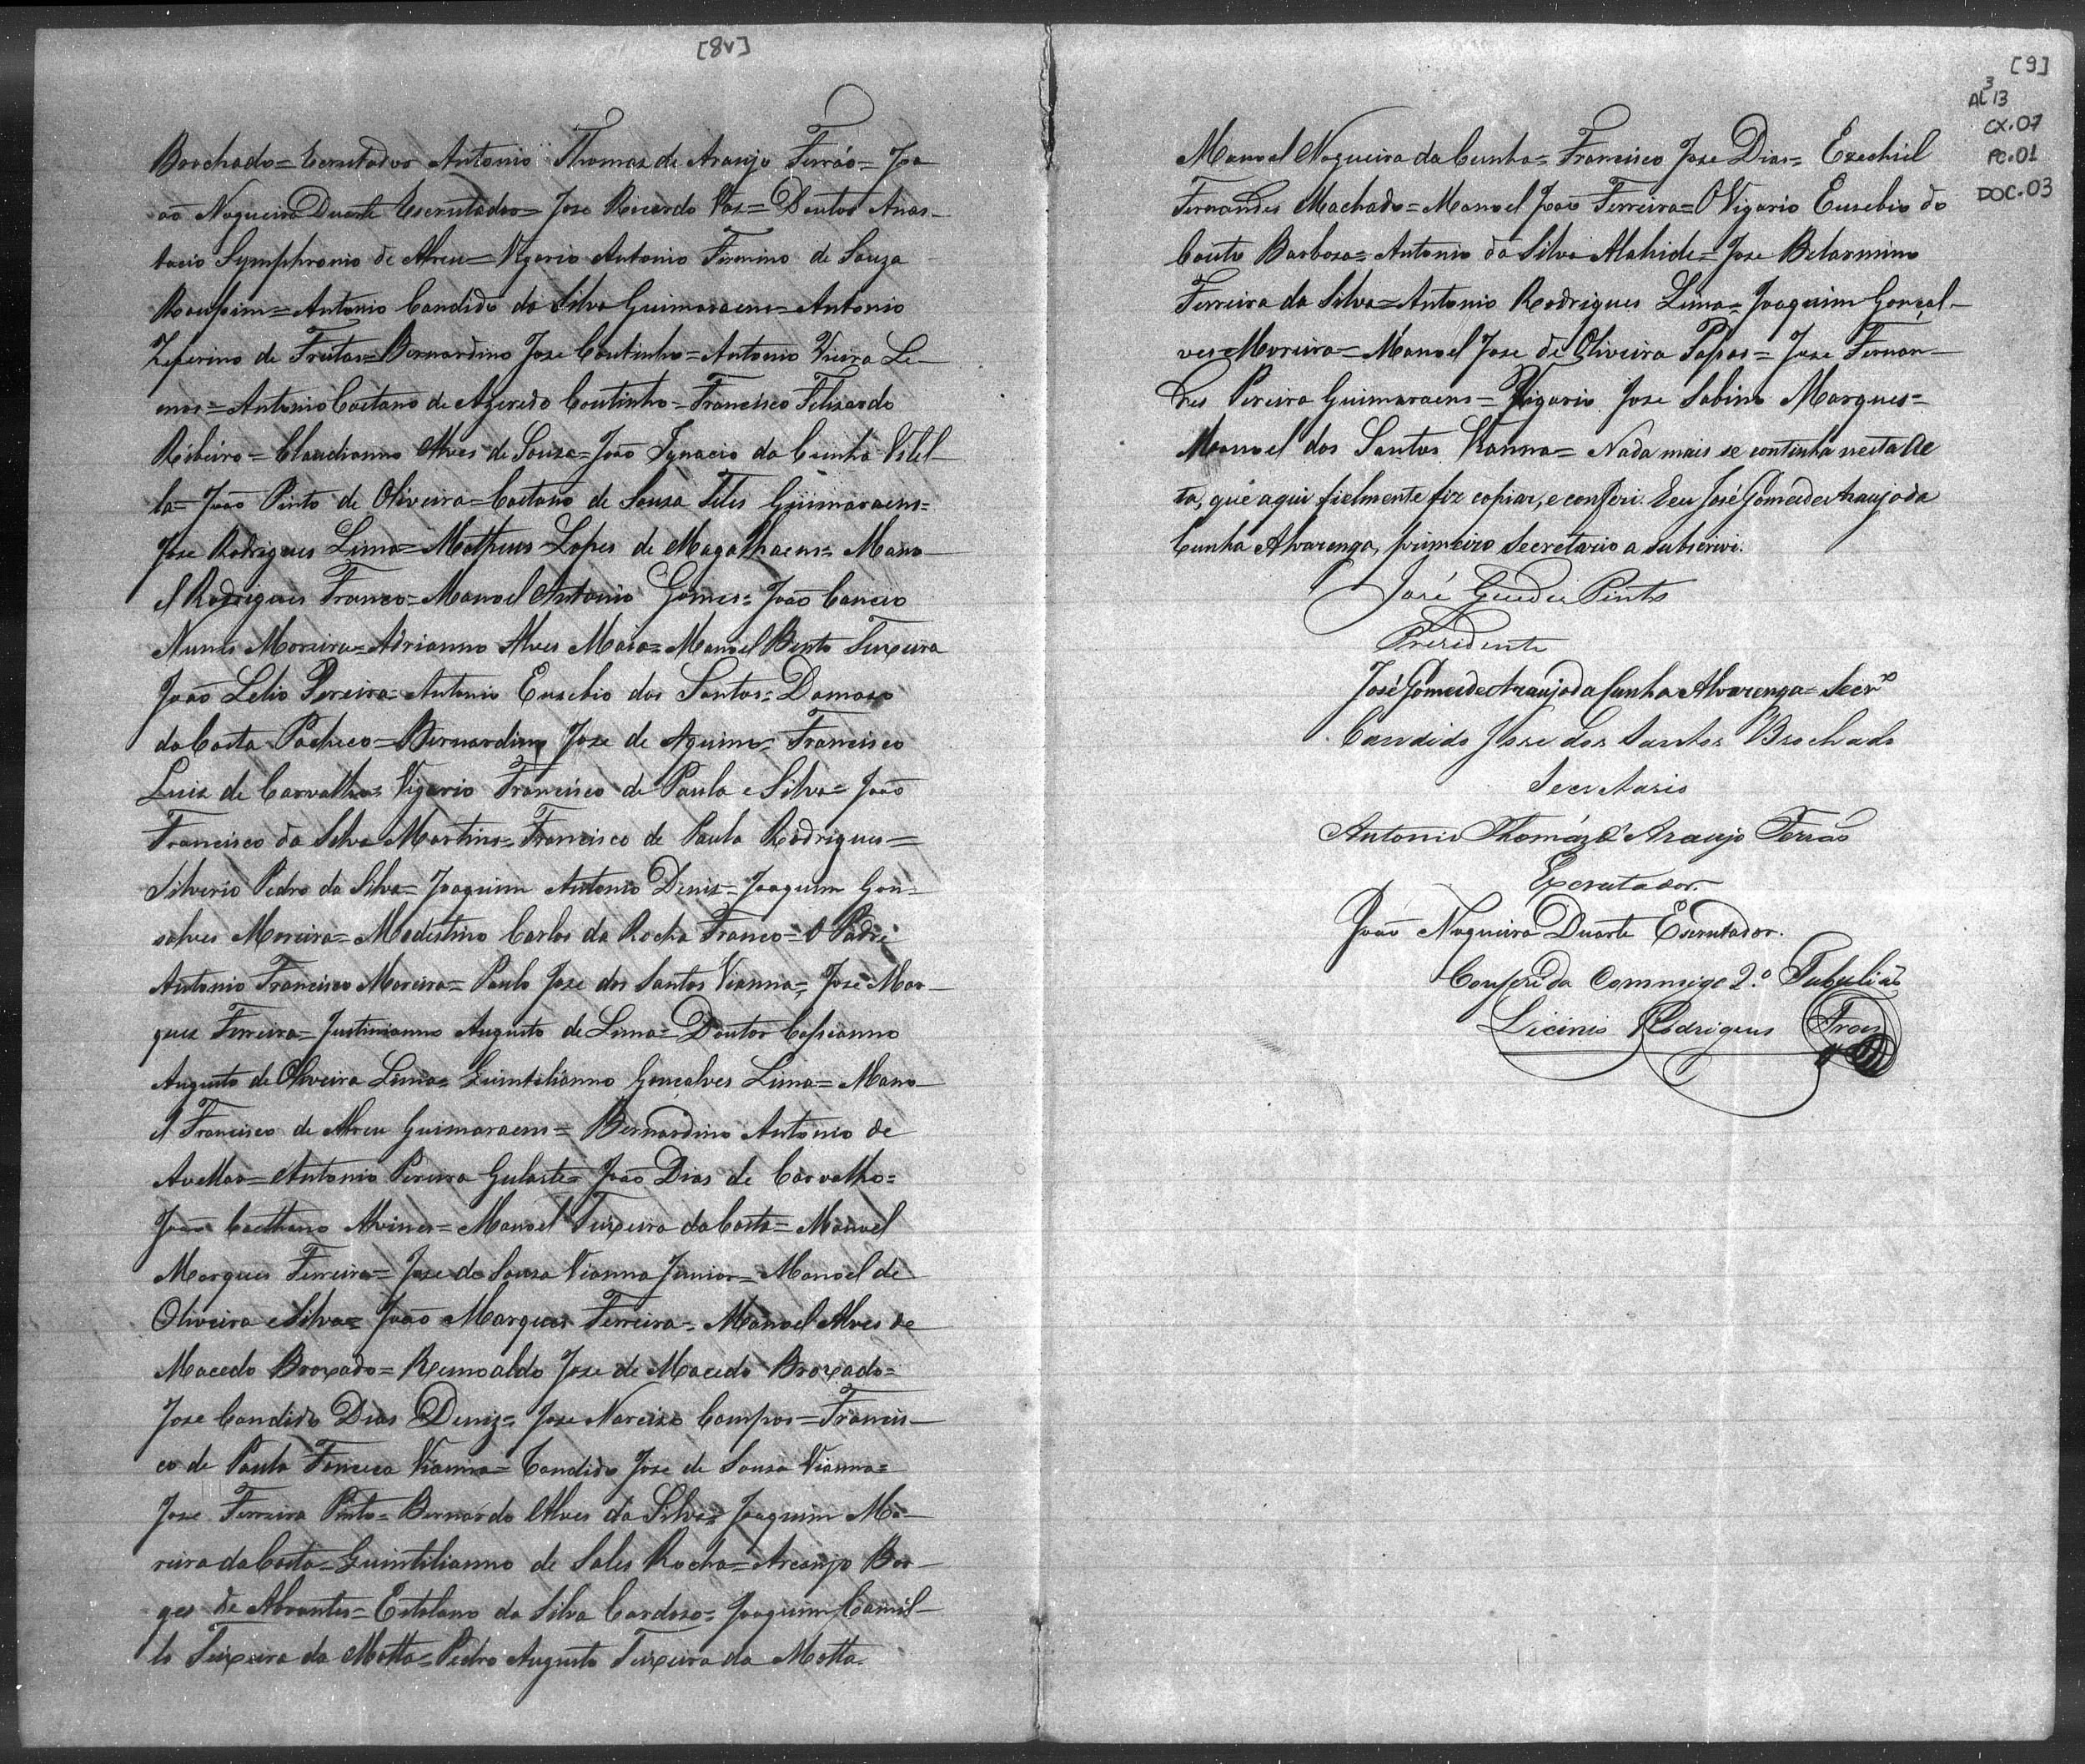 [8v]
Brochado= Escrutador Antonio Thomaz de Araujo Ferrão= Jo-
ão Nogueira Duarte Escrutador= Jose Ricardo Vaz= Doutor Anas-
tacio Symphronio de Abreu= Vigario Antonio Firmino de Souza
Roussim= Antonio Candido da Silva Guimaraens= Antonio
Zeferino de Freitas= Bernardino Jose Coutinho= Antonio Vieira Le-
mos= Antonio Caetano de Azeredo Coutinho= Francisco Felisardo
Ribeiro= Claudianno Alves de Souza= João Ignacio da Cunha Vilel-
la= João Pinto de Oliveira= Caetano de Souza Teles Guimaraens=
Jose Rodrigues Lima= Matheus Lopes de Magalhaens= Mano-
el Rodrigues Franco= Manoel Antonio Gomes= João Cancio
Nunes Moreira= Adrianno Alves Maia= Manoel Bento Teixeira
João Lelis Pereira= Antonio Eusebio dos Santos= Damaso
da Costa Pacheco= Bernardino Jose de Aquino= Francisco
Luiz de Carvalho= Vigario Francisco de Paula e Silva= João
Francisco da Silva Martins= Francisco de Paula Rodrigues=
Silverio Pedro da Silva= Joaquim Antonio Deniz= Joaquim Gon-
salves Moreira= Modestino Carlos da Rocha Franco= O Padre
Antonio Francisco Moreira= Paulo Jose dos Santos Vianna= Jose Mar-
ques Ferreira= Justinianno Augusto de Lima= Doutor Cassianno
Augusto de Oliveira Lima= Quintilianno Gonçalves Lima= Mano-
el Francisco de Abreu Guimaraens= Bernardino Antonio de
Avellar= Antonio Pereira Gularte= João Dias de Carvalho=
João Caethano Alvines= Manoel Teixeira da Costa= Manoel
Marques Ferreira= Jose de Souza Vianna Junior= Manoel de
Oliveira e Silva= João Marques Ferreira= Manoel Alves de
Macedo Broxado= Reinoaldo Jose de Macedo Broxado=
Jose Candido Dias Deniz= Jose Narcizo Campos= Francis-
co de Paula Fonceca Vianna= Candido Jose de Souza Vianna=
Jose Ferreira Pinto= Bernardo Alves da Silva= Joaquim Mo-
reira da Costa= Quintilianno de Sales Rocha= Arcanjo Bor-
ges de Abrantes= Estolano da Silva Cardoso= Joaquim Camil-
lo Teixeira da Motta= Pedro Augusto Teixeira da Motta
[9]
AL 3 13
CX.07
PC.01
DOC.03
Manoel Nogueira da Cunha= Francisco Jose Dias= Ezechiel
Fernandes Machado= Manoel João Ferreira= O Vigario Eusebio do
Couto Barbosa= Antonio da Silva Alahide= Jose Belarmino
Ferreira da Silva= Antonio Rodrigues Lima= Joaquim Gonçal-
ves Moreira= Manoel Jose de Oliveira Passos= Jose Fernan-
des Pereira Guimaraens= Vigario Jose Sabino Marques=
Manoel dos Santos Vianna= Nada mais se continha nesta Ac
ta, que aqui fielmente fiz copiar, e conferi. E eu José Gomes de Araujo da
Cunha Alvarenga, primeiro secretario a subscrevi.
José Guedes Pinto
Presidente
José Gomes de Araujo da Cunha Alvarenga= Secr.º
Candido Jose dos Santos Brochado
Secretario
Antonio Thomáz d'Araujo Ferrão
Escrutador.
João Nogueira Duarte Escrutador.
Conferida commigo 2.º Tabelião
Licinio Rodrigues Froes